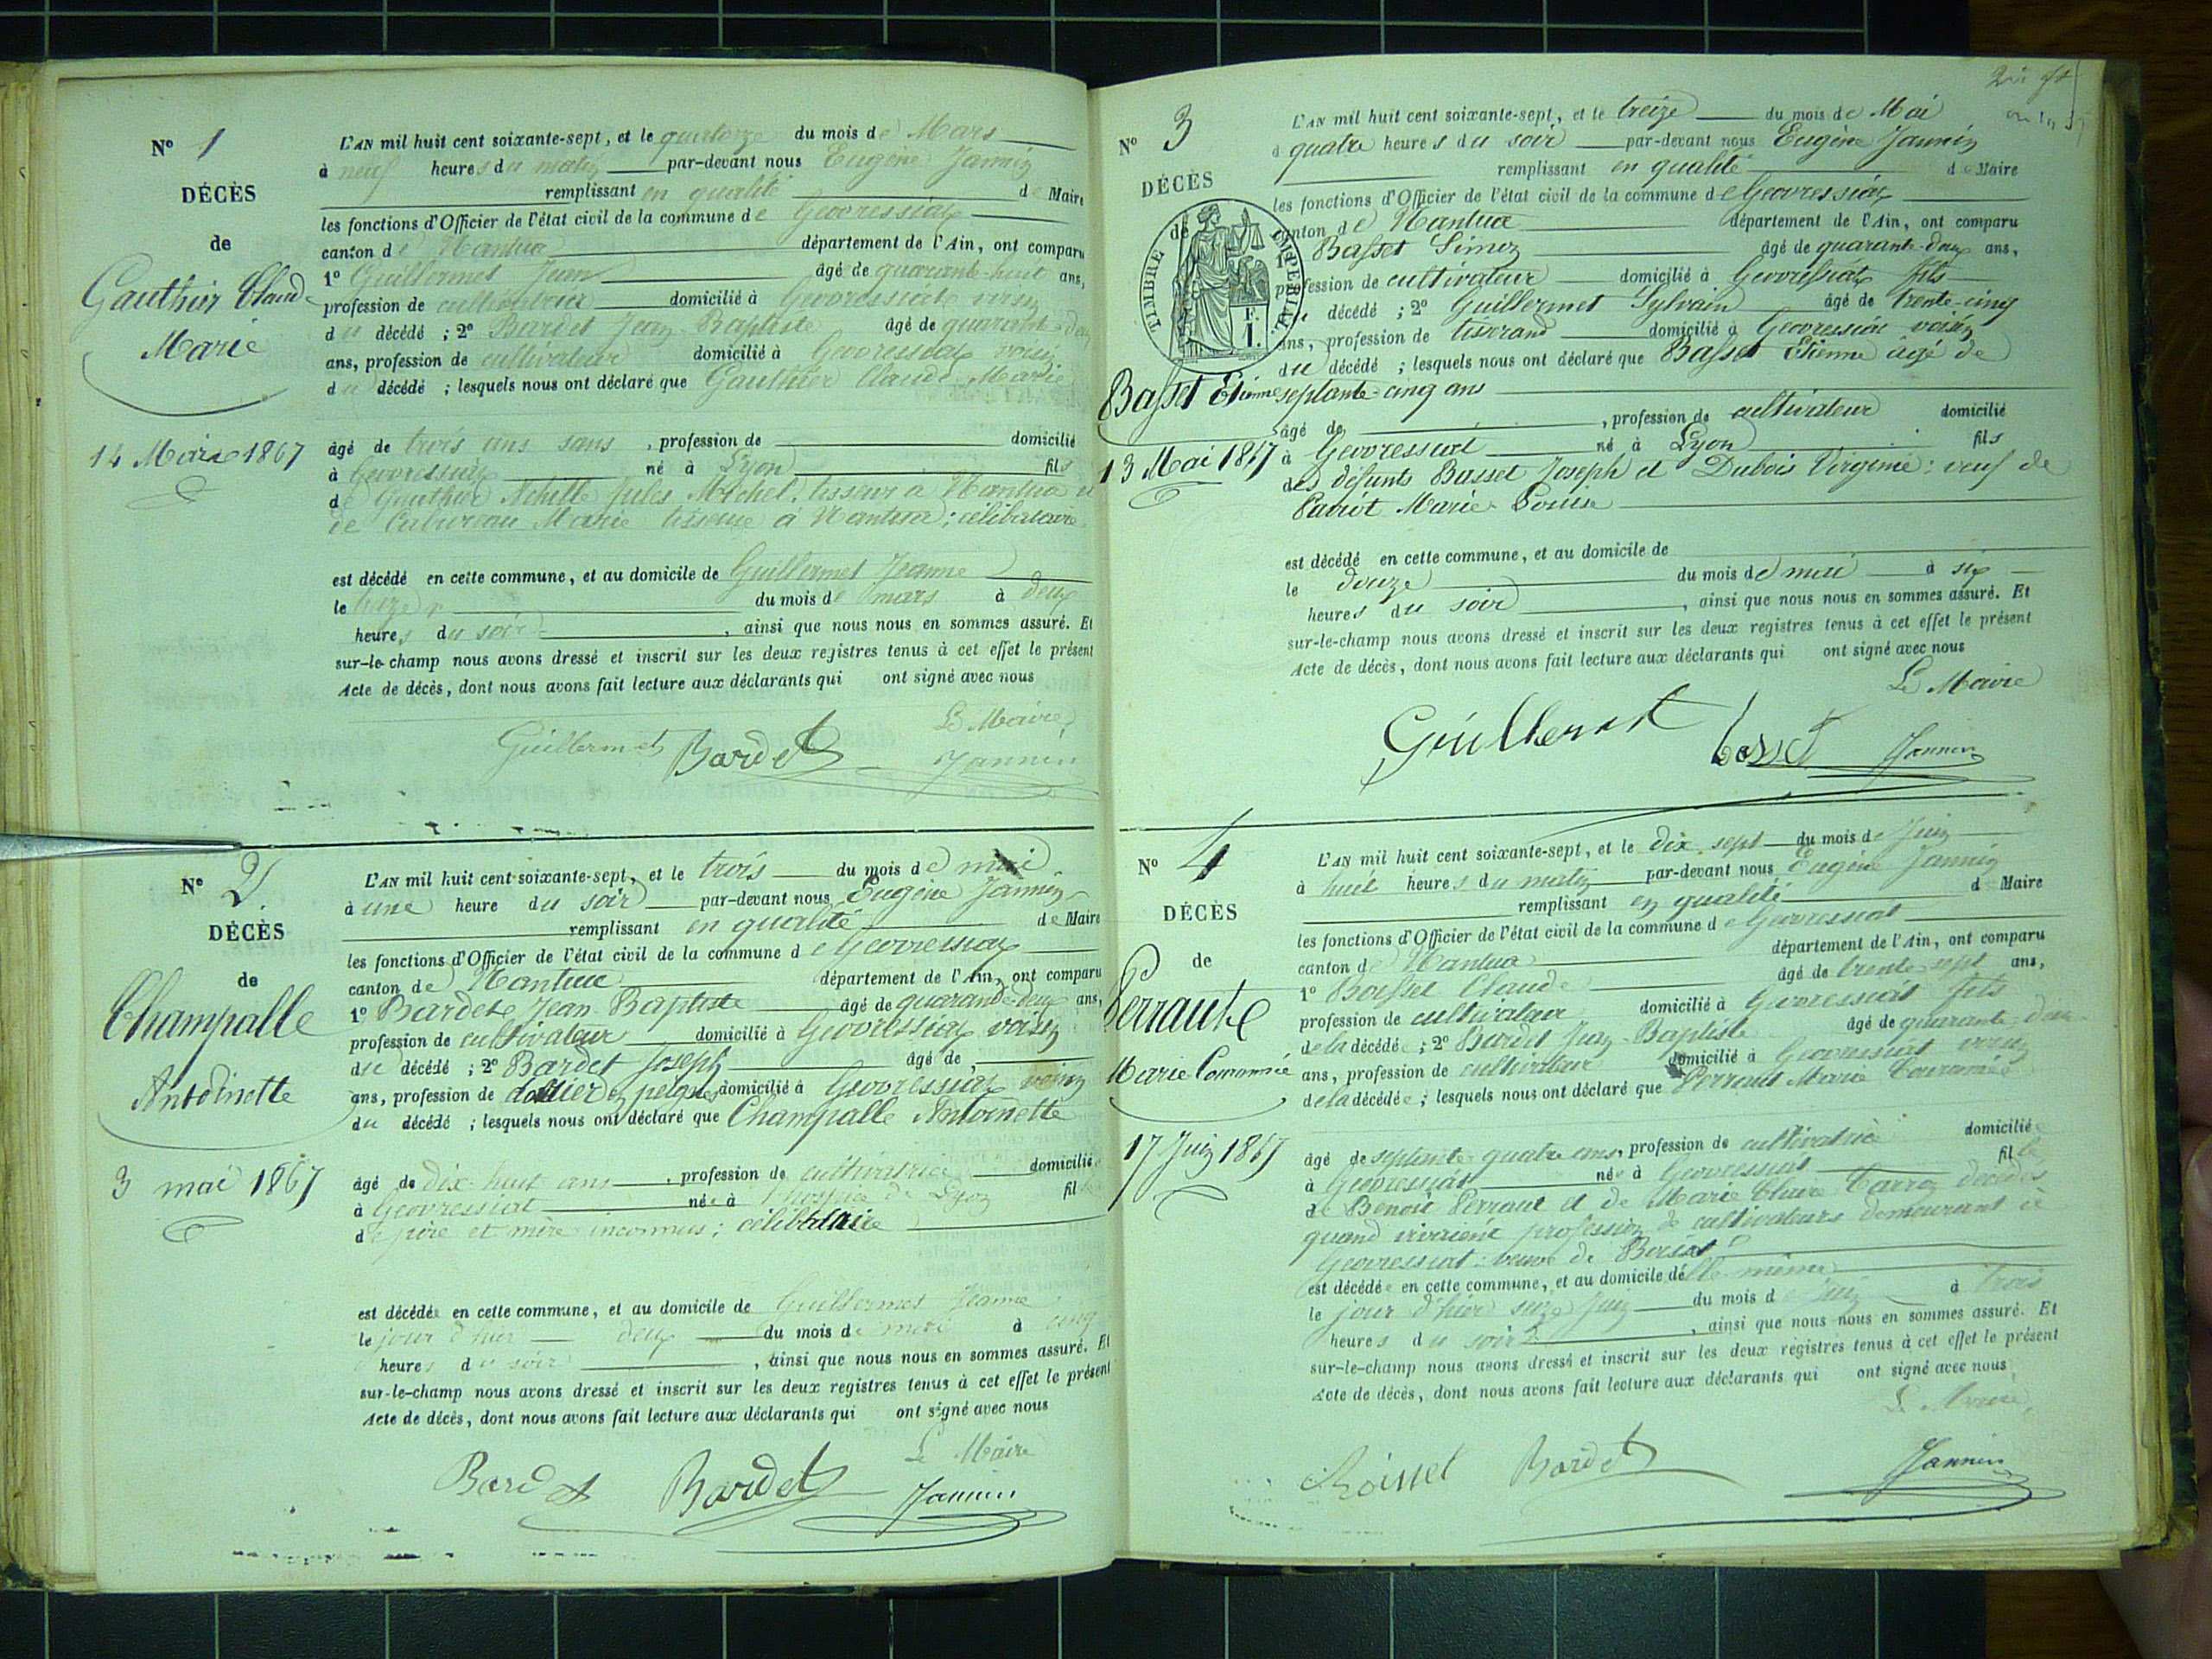 N° 1
DÉCÈS
de
Gauthier Claude
Marie
14 Mars 1867
L'AN mil huit cent soixante-sept, et le quatorze du mois de Mars
à neuf heures du matin par-devant nous Eugène Jannin
remplissant en qualité de Maire
les fonctions d'Officier de l'état civil de la commune de Geovressiat
canton de Nantua département de l'Ain, ont comparu
1° Guillermet Jean âgé de quarante-huit ans,
profession de cultivateur domicilié à Geovressiat voisin
du décédé ; 2° Bardet Jean Baptiste âgé de quarante-deux
ans, profession de cultivateur domicilié à Geovressiat voisin
du décédé ; lesquels nous ont déclaré que Gauthier Claude Marie
âgé de trois ans sans , profession de domicilié
à Geovressiat né à Lyon fils
de Gauthier Achille Jules Michel, tisseur à Nantua et
de Marie tisseuse à Nantua ; célibataire
est décédé en cette commune, et au domicile de Guillermet Jeanne
le treize du mois de mars à deux
heures du soir , ainsi que nous nous en sommes assuré. Et
sur-le-champ nous avons dressé et inscrit sur les deux registres tenus à cet effet le présent
Acte de décès, dont nous avons fait lecture aux déclarants qui ont signé avec nous
Le Maire,
Guillermet Bardet Jannin
N° 2
DÉCÈS
de
Champalle
Antoinette
3 mai 1867
L'AN mil huit cent soixante-sept, et le trois du mois de mai
à une heure du soir par-devant nous Eugène Jannin
remplissant en qualité de Maire
les fonctions d'Officier de l'état civil de la commune de Geovressiat
canton de Nantua département de l'Ain, ont comparu
1° Bardet Jean Baptiste âgé de quarante-deux ans,
profession de cultivateur domicilié à Geovressiat voisin
du décédé ; 2° Bardet Joseph âgé de
ans, profession de en peignes domicilié à Geovressiat voisin
du décédé ; lesquels nous ont déclaré que Champalle Antoinette
âgé de dix-huit ans , profession de cultivatrice domiciliée
à Geovressiat née à l'hospice de Lyon fille
de père et mère inconnus ; célibataire
est décédée en cette commune, et au domicile de Guillermet Jeanne
le jour d'hier deux du mois de mai à cinq
heures du soir , ainsi que nous nous en sommes assuré. Et
sur-le-champ nous avons dressé et inscrit sur les deux registres tenus à cet effet le présent
Acte de décès, dont nous avons fait lecture aux déclarants qui ont signé avec nous
Le Maire
Bardet Bardet Jannin
N° 3
DÉCÈS
de
TIMBRE IMPÉRIAL
F.
1.
Basset Etienne
13 Mai 1867
L'AN mil huit cent soixante-sept, et le treize du mois de Mai
à quatre heures du soir par-devant nous Eugène Jannin
remplissant en qualité de Maire
les fonctions d'Officier de l'état civil de la commune de Geovressiat
canton de Nantua département de l'Ain, ont comparu
1° Basset Simon âgé de quarante-deux ans,
profession de cultivateur domicilié à Geovressiat fils
du décédé ; 2° Guillermet Sylvain âgé de trente-cinq
ans, profession de tisserand domicilié à Geovressiat voisin
du décédé ; lesquels nous ont déclaré que Basset Etienne âgé de
septante-cinq ans
âgé de , profession de cultivateur domicilié
à Geovressiat né à Lyon fils
des défunts Basset Joseph et Dubois Virginie ; veuf de
Marie Louise
est décédé en cette commune, et au domicile de
le douze du mois de mai à six
heures du soir , ainsi que nous nous en sommes assuré. Et
sur-le-champ nous avons dressé et inscrit sur les deux registres tenus à cet effet le présent
Acte de décès, dont nous avons fait lecture aux déclarants qui ont signé avec nous
Le Maire
Guillermet basset Jannin
N° 4
DÉCÈS
de
Perraut
Marie
17 Juin 1867
L'AN mil huit cent soixante-sept, et le dix sept du mois de Juin
à huit heures du matin par-devant nous Eugène Jannin
remplissant en qualité de Maire
les fonctions d'Officier de l'état civil de la commune de Geovressiat
canton de Nantua département de l'Ain, ont comparu
1° Claude âgé de trente-sept ans,
profession de cultivateur domicilié à Geovressiat fils
de la décédée ; 2° Bardet Jean Baptiste âgé de quarante deux
ans, profession de cultivateur domicilié à Geovressiat voisin
de la décédée ; lesquels nous ont déclaré que Perraut Marie
âgé de septante quatre ans, profession de cultivatrice domiciliée
à Geovressiat née à Geovressiat fille
de Benoit Perraut et de Marie Claire décédés
quand vivaient profession de cultivateurs demeurant à
Geovressiat ; veuve de
est décédée en cette commune, et au domicile d'elle-même
le jour d'hier seize Juin du mois de Juin à trois
heures du soir , ainsi que nous nous en sommes assuré. Et
sur-le-champ nous avons dressé et inscrit sur les deux registres tenus à cet effet le présent
Acte de décès, dont nous avons fait lecture aux déclarants qui ont signé avec nous
Le Maire,
Bardet Jannin